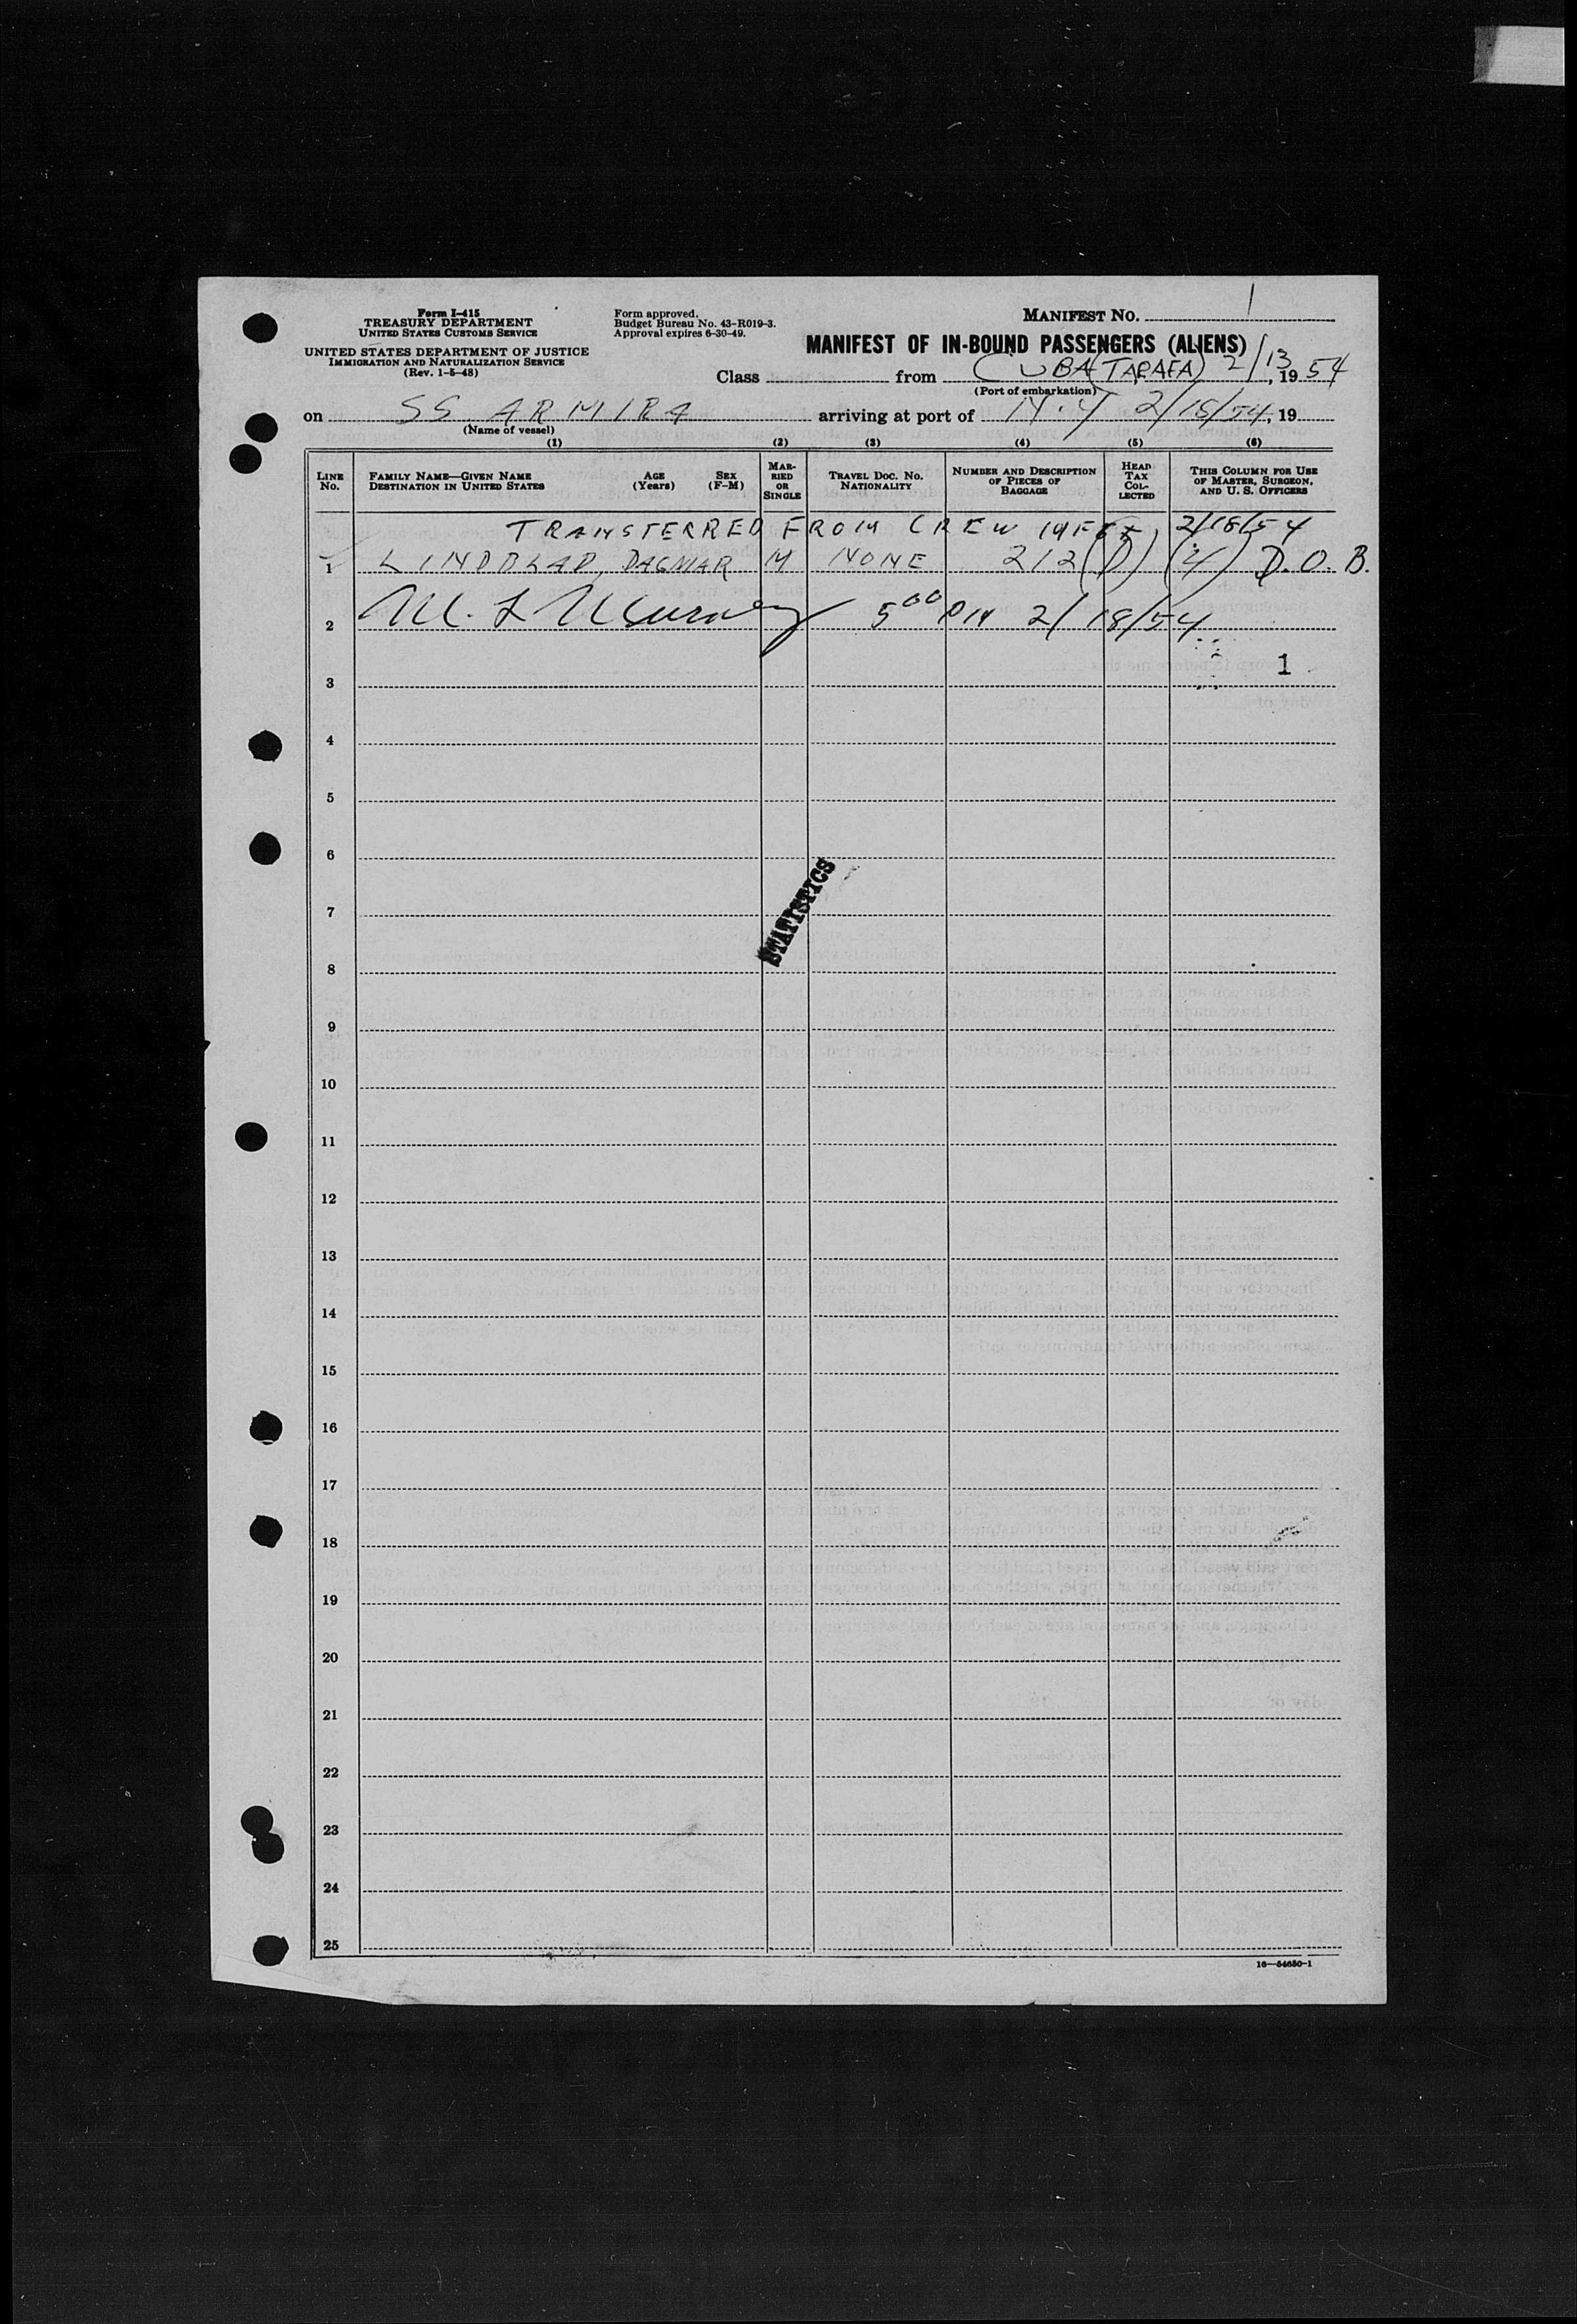 Form I-415
TREASURY DEPARTMENT
UNITED STATES CUSTOMS SERVICE
UNITED STATES DEPARTMENT OF JUSTICE
IMMIGRATION AND NATURALIZATION SERVICE
(Rev. 1-5-48)
Form approved.
Budget Bureau No. 43-R019-3.
Approval expires 6-30-49.
MANIFEST NO. 1
MANIFEST OF IN-BOUND PASSENGERS (ALIENS)
Class from CUBA (TARAFA) 2/13, 19 54
(Port of embarkation)
on SS ARMIRA arriving at port of N.Y 2/18/54, 19
(Name of vessel)
(1) (2) (3) (4) (5) (6)
LINE NO. FAMILY NAME—GIVEN NAME DESTINATION IN UNITED STATES AGE (Years) SEX (F-M) MARRIED OR SINGLE TRAVEL DOC. NO. NATIONALITY NUMBER AND DESCRIPTION OF PIECES OF BAGGAGE HEAD TAX COLLECTED THIS COLUMN FOR USE OF MASTER, SURGEON, AND U. S. OFFICERS
TRANSFERRED FROM CREW 2/18/54
1 LINDBLAD, DAGMAR M NONE 212 (D) (4) D.O.B.
2 5 00 PM 2/18/54
3 1
4
5
6
7
STATISTICS
8
9
10
11
12
13
14
15
16
17
18
19
20
21
22
23
24
25
16—54650-1